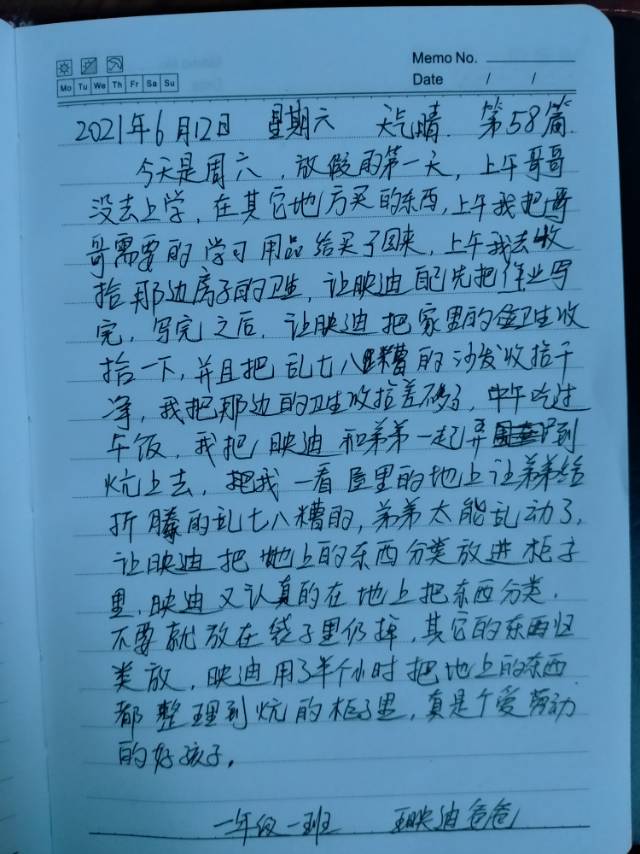 Memo No.
Mo Tu We Th Fr Sa Su
Date / /
2021年6月12日 星期六 天气晴. 第58篇.
今天是周六，放假的第一天，上午哥哥
没去上学，在其它地方买的东西，上午我把哥
哥需要的学习用品给买了回来，上午我去收
拾那边房子的卫生，让映迪配先把作业写
完，写完之后，让映迪把家里的卫生收
拾一下，并且把乱七八糟的沙发收拾干
净，我把那边的卫生收拾差不多了，中午吃过
午饭，我把映迪和弟弟一起弄到
炕上去，我一看屋里的地上让弟弟给
折腾的乱七八糟的，弟弟太能乱动了，
让映迪把地上的东西分类放进柜子
里，映迪又认真的在地上把东西分类，
不要就放在袋子里仍掉，其它的东西归
类放，映迪用了半个小时把地上的东西
都整理到炕的柜子里，真是个爱劳动
的好孩子。
一年级一班 王映迪爸爸